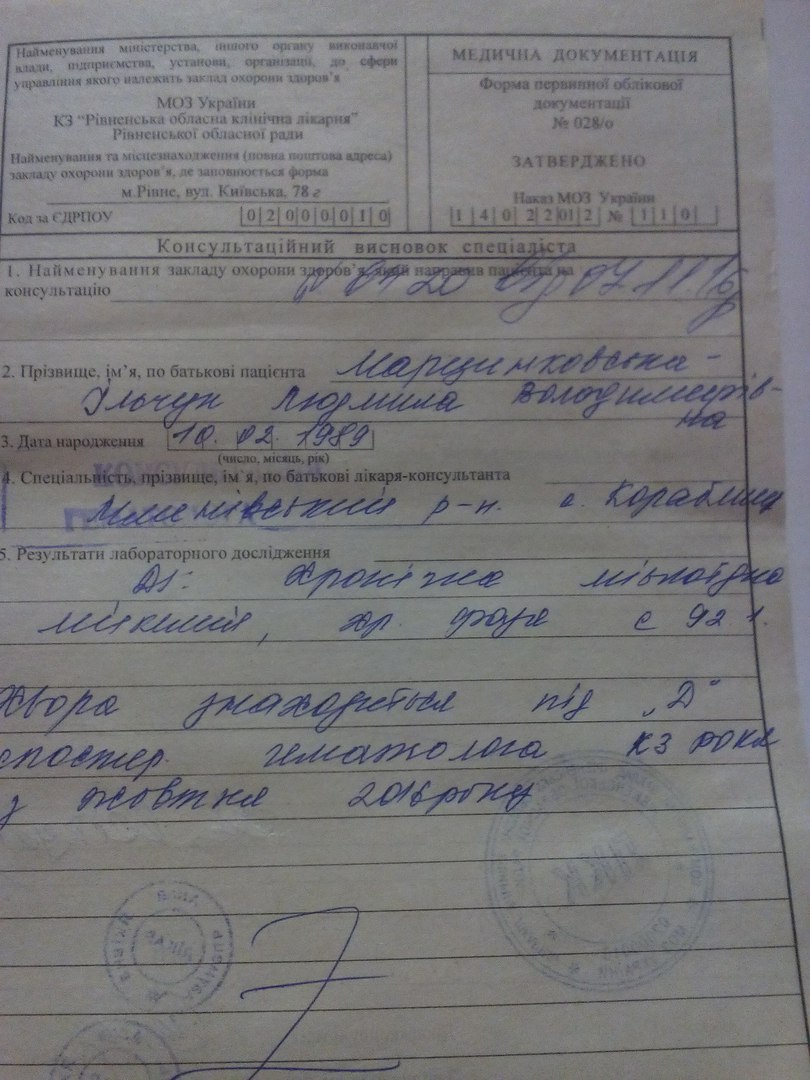 Найменування міністерства, іншого органу виконавчої
влади, підприємства, установи, організації, до сфери
управління якого належить заклад охорони здоров'я
МОЗ України
КЗ "Рівненська обласна клінічна лікарня"
Рівненської обласної ради
Найменування та місцезнаходження (повна поштова адреса)
закладу охорони здоров'я, де заповнюється форма
м.Рівне, вул. Київська, 78 г
Код за ЄДРПОУ 02000010
МЕДИЧНА ДОКУМЕНТАЦІЯ
Форма первинної облікової
документації
№ 028/о
ЗАТВЕРДЖЕНО
Наказ МОЗ України
14022012 № 110
Консультаційний висновок спеціаліста
1. Найменування закладу охорони здоров'я, який направив пацієнта на
консультацію 07.11.16
2. Прізвище, ім'я, по батькові пацієнта Марцинковська-
Ільчук Людмила Володимирів-
на
3. Дата народження 10.02.1989
(число, місяць, рік)
4. Спеціальність, прізвище, ім'я, по батькові лікаря-консультанта
р-н. с.
5. Результати лабораторного дослідження
Ds: Хронічна мієлоїдна
лейкемія, хр. фаза с 92 1.
Хвора знаходиться під „Д"
спостер. гематолога КЗ РОКЛ
з жовтня 2016 року